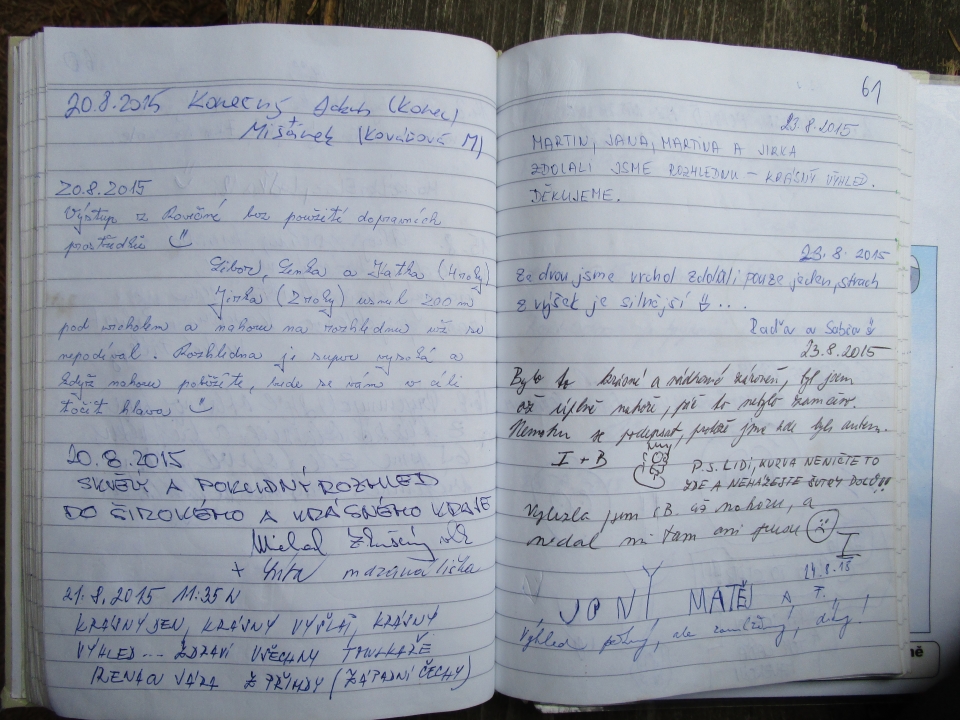 20.8.2015 Konečný Jakub (Konec)
+
Mišánek (Kovářová M)
20.8.2015
Výstup z Rovečné bez použití dopravních
prostředků
Libor, Lenka a Játka (4 roky)
Jirka (2 roky) usnul 200 m
pod vrcholem a nahoru na rozhlednu už se
nepodíval. Rozhledna je super vysoká a
když nahoru poběžíte, bude se vám v cíli
točit hlava
20.8.2015
SKVĚLÝ A POKLIDNÝ ROZHLED
DO ŠIROKÉHO A KRÁSNÉHO KRAJE
Michal vlk
+ mazaná liška
21.8.2015 11:35 h
KRÁSNÝ DEN, KRÁSNÝ VÝŠLAP, KRÁSNÝ
VÝHLED... ZDRAVÍ VŠECHNY
RENA A JÁRA Z PŘIMDY (ZÁPADNÍ ČECHY)
61
23.8.2015
MARTIN, JANA, MARTINA A JIRKA
ZDOLALI JSME ROZHLEDNU – KRÁSNÝ VÝHLED.
DĚKUJEME.
23.8.2015
Ze dvou jsme vrchol zdolali pouze jeden, strach
z výšek je silnější ...
Raďa a Sabča
23.8.2015
Bylo to krásné a nádherné zároveň, byl jsem
až úplně nahoře, páč to nebylo zamčený.
Nemohu se podepsat, protože jsme zde byli autem.
I + B
P.S. LIDI, KURVA NENIČTE TO
ZDE A NEHÁZEJTE ŠUTRY DOLŮ!!
Vylezla jsem s B. až nahoru, a
nedal mi tam ani pusu
I
24.8.15
JONY MATĚJ A T.
Výhled pěkný, ale zamlžený, díky!
ně